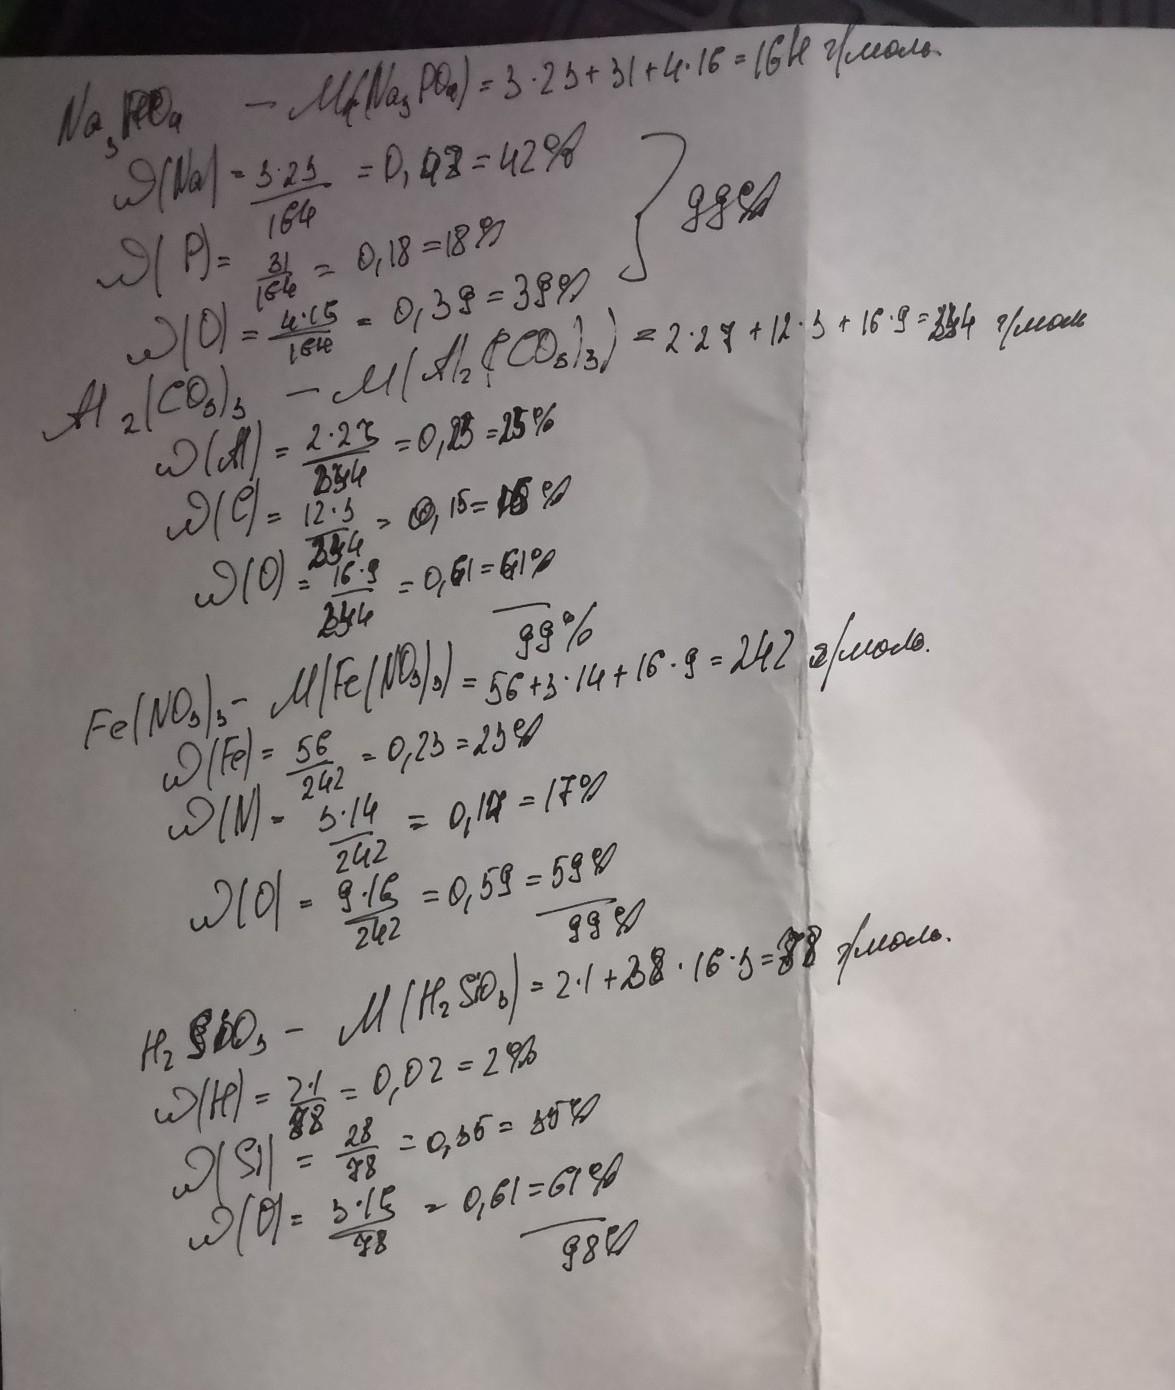 Na₃PO₄ — M(Na₃PO₄) = 3·23+31+4·16 = 164 г/моль.
ω(Na) = 3·23/164 = 0,42 = 42%
ω(P) = 31/164 = 0,18 = 18%
ω(O) = 4·16/164 = 0,39 = 39%
} 99%
Al₂(CO₃)₃ — M(Al₂(CO₃)₃) = 2·27+12·3+16·9 = 234 г/моль
ω(Al) = 2·27/234 = 0,23 = 23%
ω(C) = 12·3/234 = 0,15 = 15%
ω(O) = 16·9/234 = 0,61 = 61%
99%
Fe(NO₃)₃ — M(Fe(NO₃)₃) = 56+3·14+16·9 = 242 г/моль.
ω(Fe) = 56/242 = 0,23 = 23%
ω(N) = 3·14/242 = 0,17 = 17%
ω(O) = 9·16/242 = 0,59 = 59%
99%
H₂SiO₃ — M(H₂SiO₃) = 2·1+28·16·3 = 78 г/моль.
ω(H) = 2·1/78 = 0,02 = 2%
ω(Si) = 28/78 = 0,35 = 35%
ω(O) = 3·16/78 = 0,61 = 61%
98%